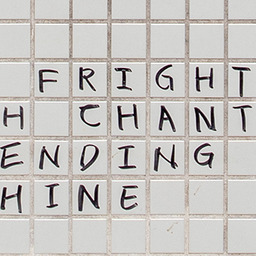 FRIGHT
H CHANT
ENDING
HINE